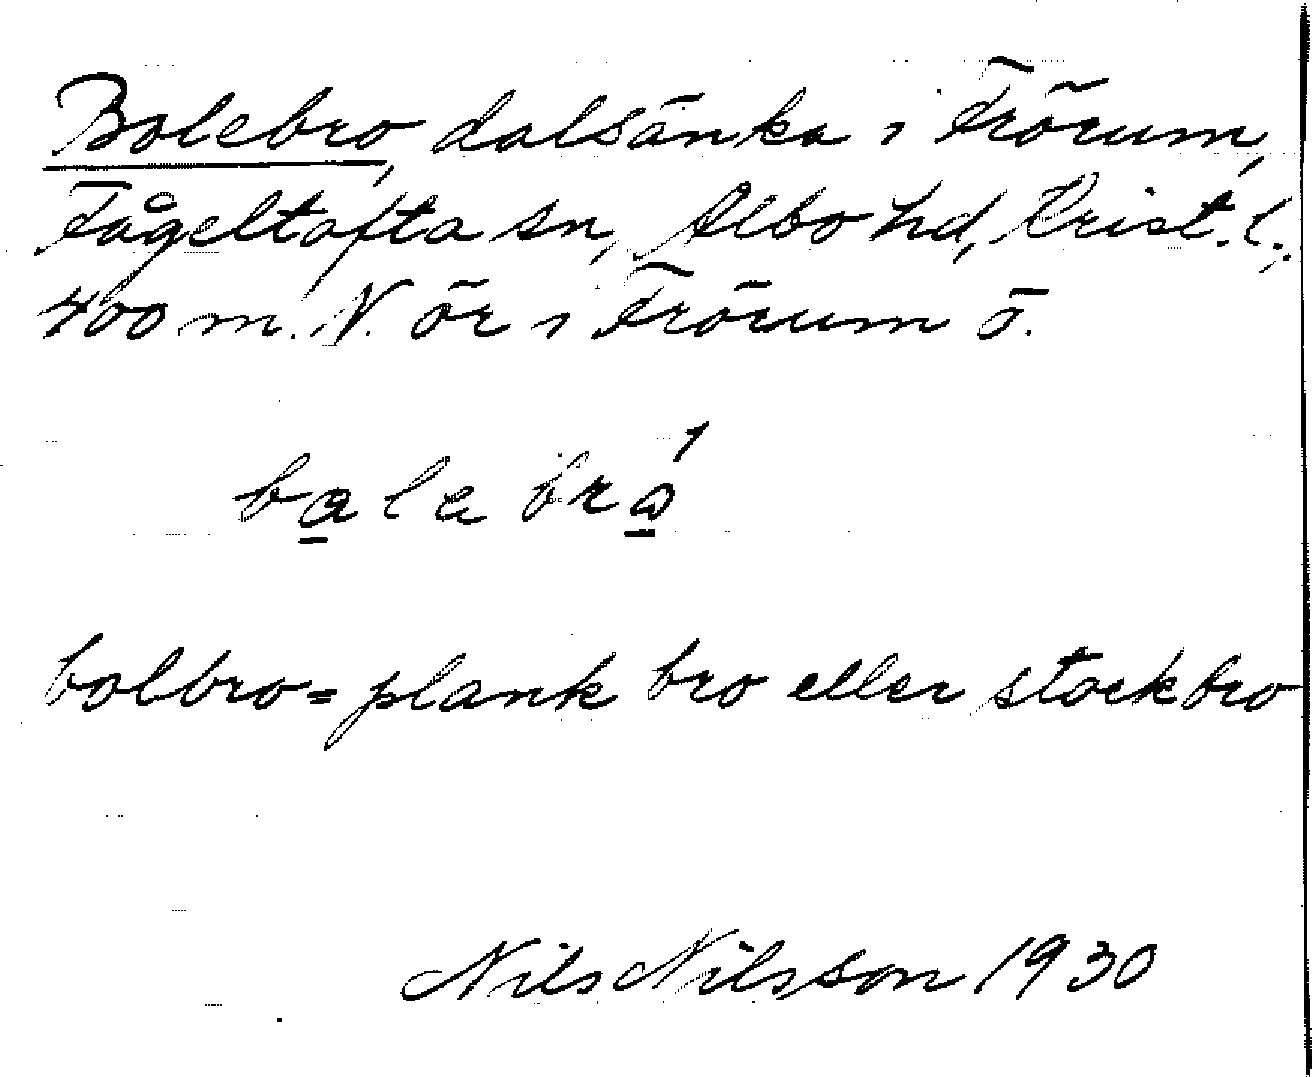 Bolebro, dalsänka i Frörum,
Fågeltofta sn, Albo hd, Krist. l.;
400 m. N. ör i Frörum ö.
bolbro = plank bro eller stockbro
Nils Nilsson 1930